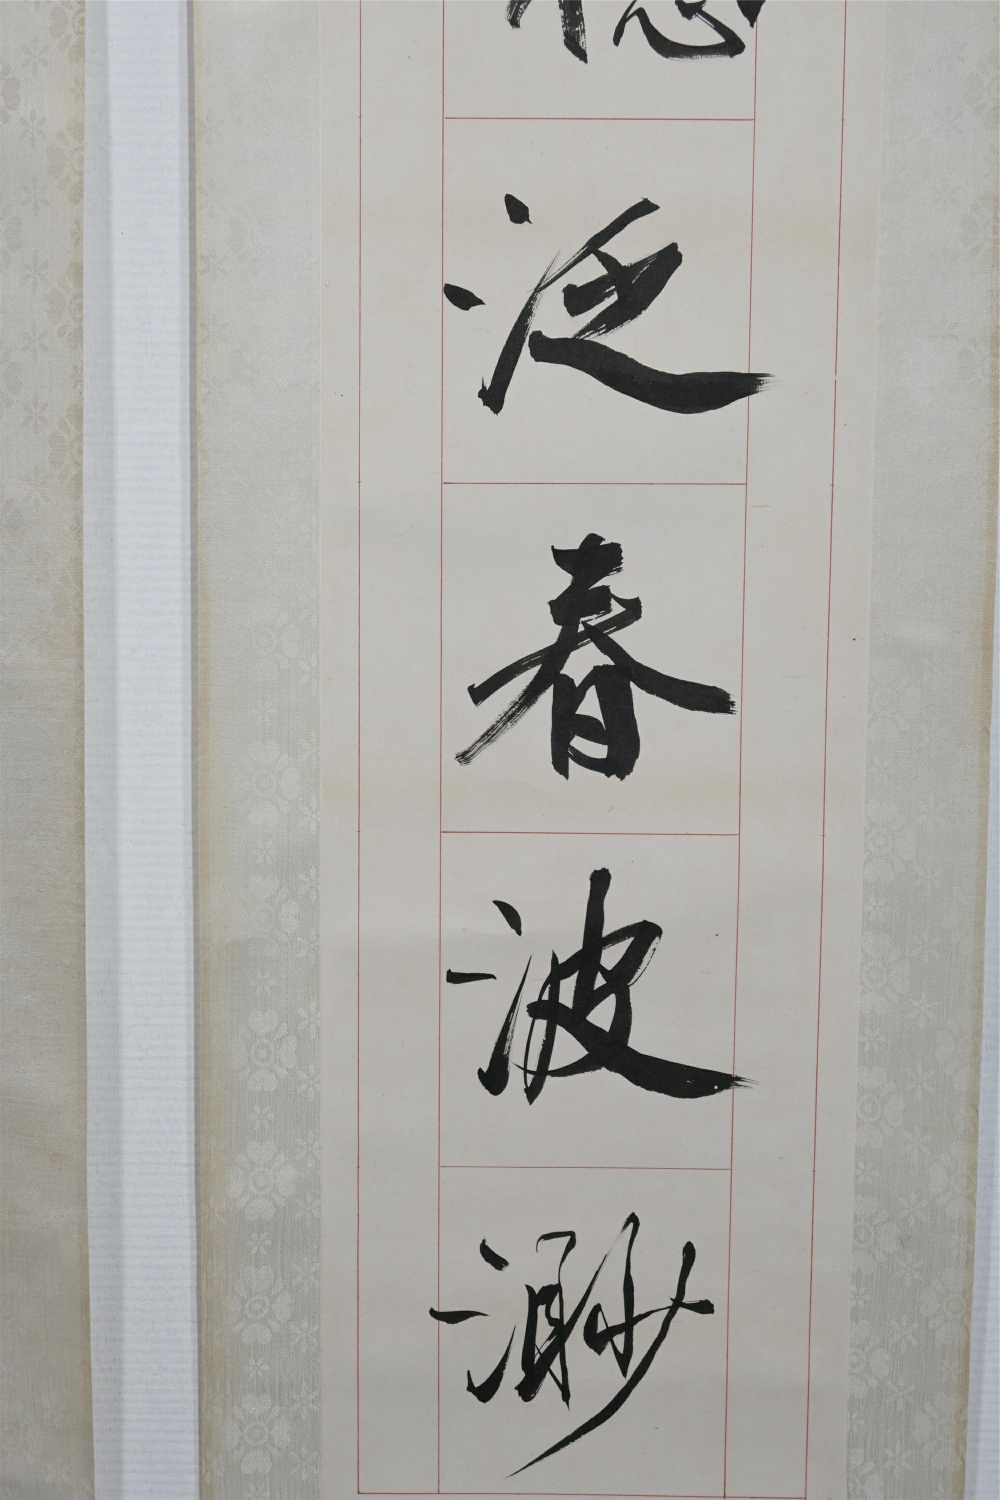 泛春波渺